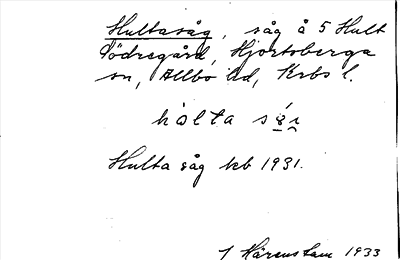 Hultasåg, såg å 5 Hult
Södregård, Hjortsberga
sn, Allbo hd, Krbs l.
hòlta
Hulta såg kb 1931.
1933